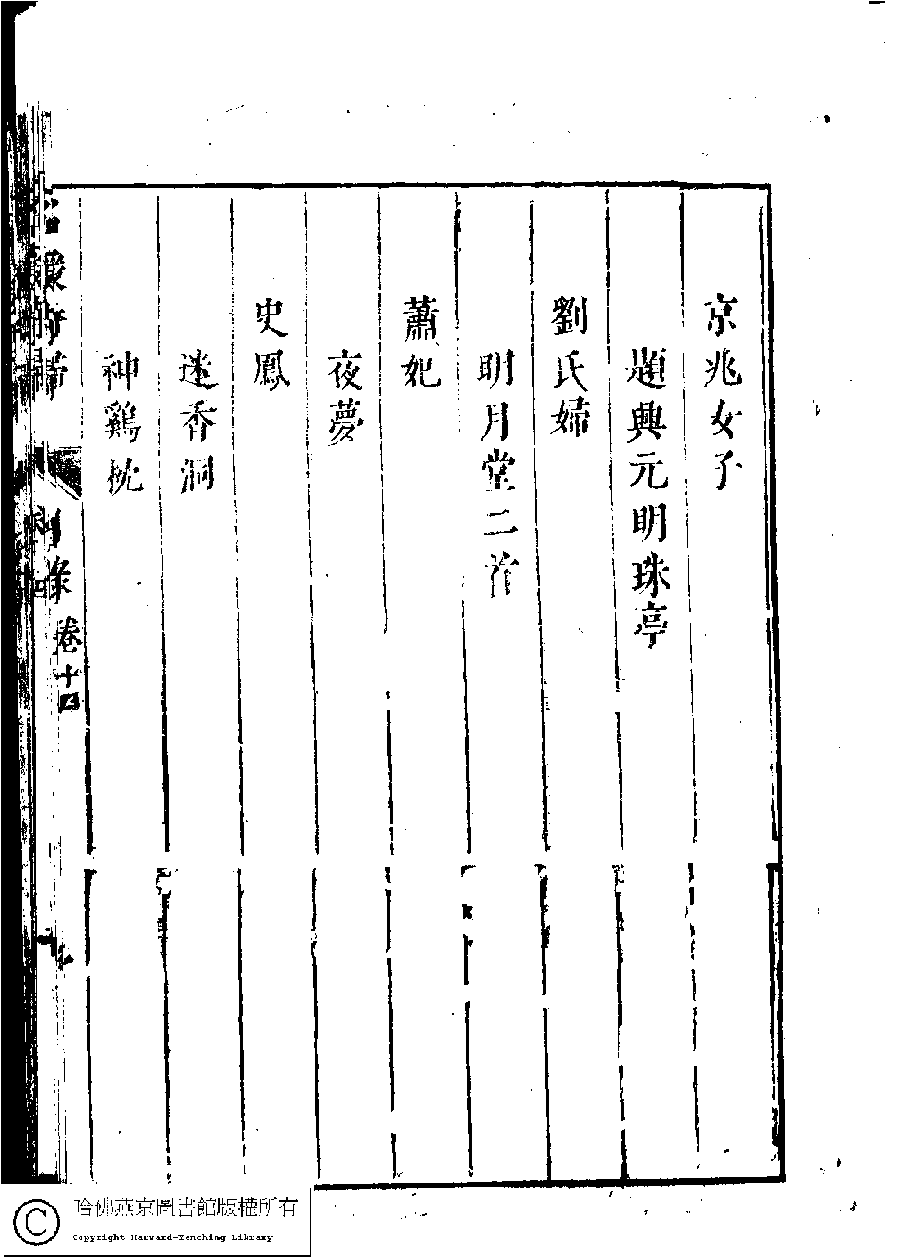 京兆女子
題興元明珠亭
劉氏婦
明月堂二首
蕭妃
夜夢
史鳳
迷香洞
神鷄枕
目錄
卷十四
九
哈佛燕京圖書館版權所有
Copyright Harvard-Yenching Library